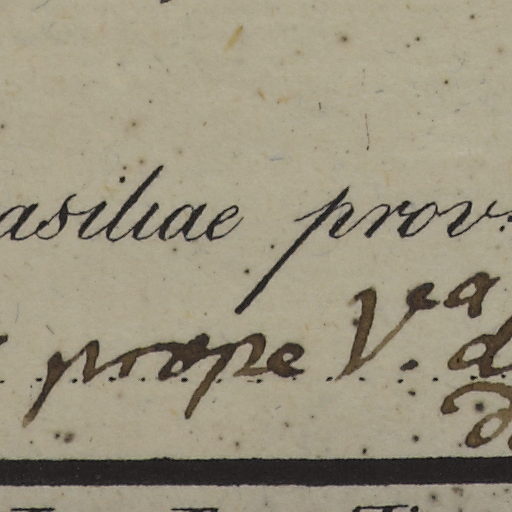 asiliae prov.
prope V.ea d